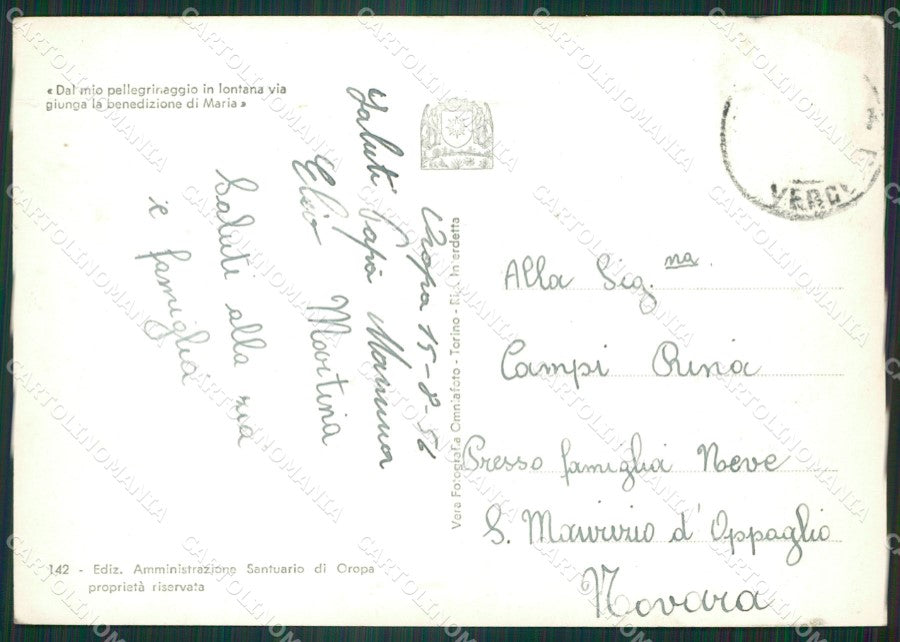 « Dal mio pellegrinaggio in lontana via
giunga la benedizione di Maria »
Oropa 15-8-56
Saluti Papà Mamma
Elio Martina
Saluti alla zia
e famiglia
Vera Fotografia Omniafoto - Torino - Rip. Interdetta
VERC
Alla Sig.na
Campi Rina
Presso famiglia Neve
S. Maurizio d'Oppaglio
Novara
142 - Ediz. Amministrazione Santuario di Oropa
proprietà riservata
CARTOLINOMANIA